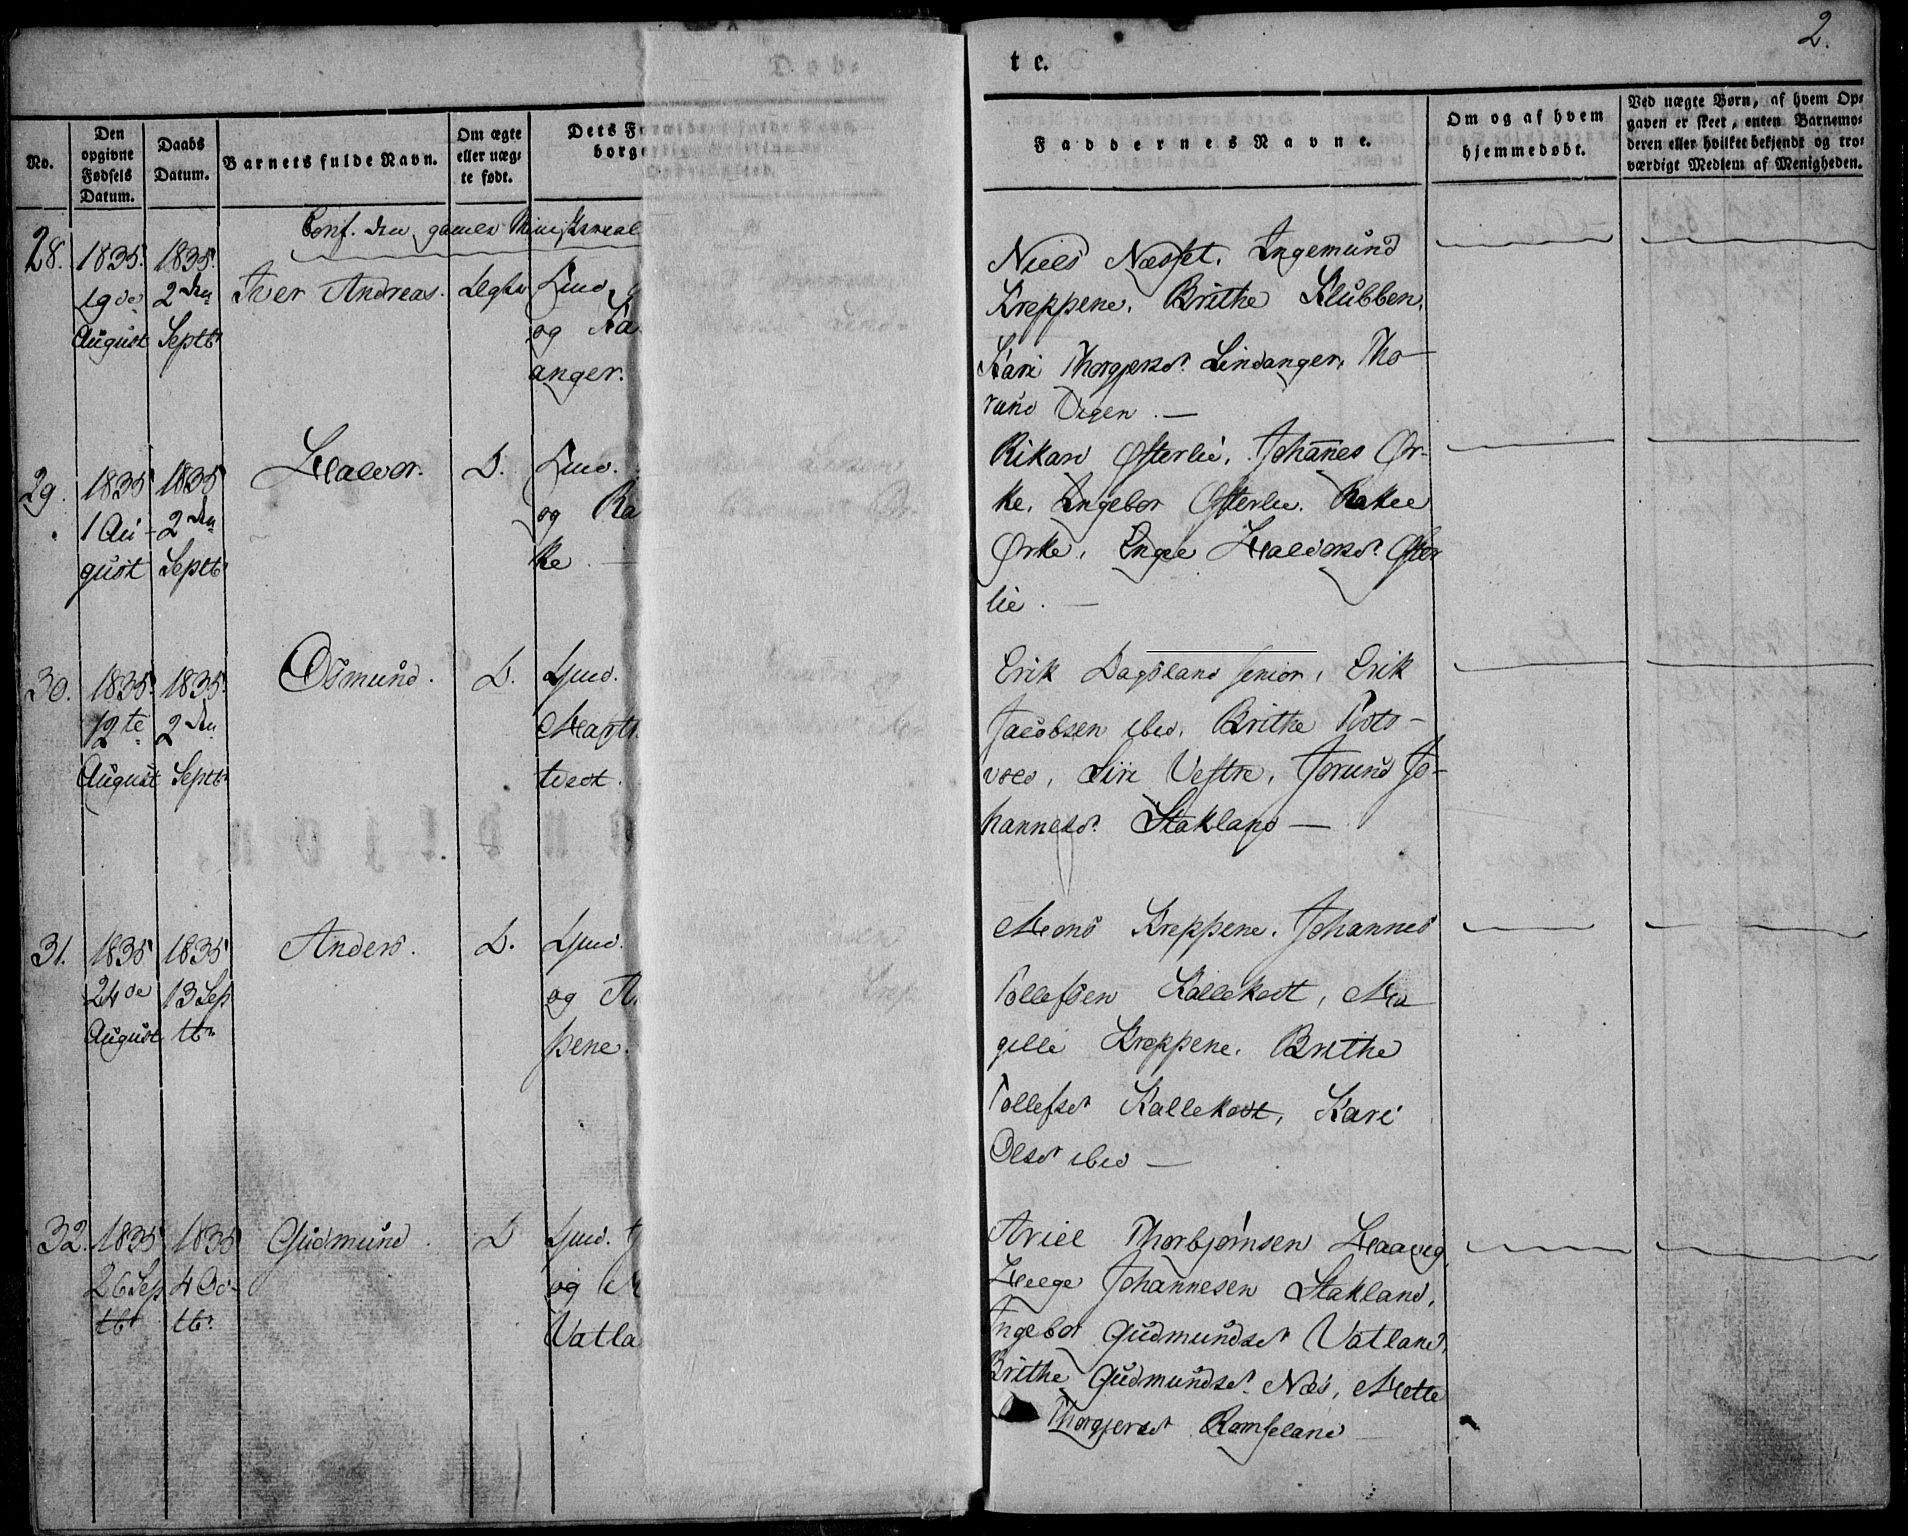 2.
te.
No.
Den opgivne Fødsels Datum.
Daabs Datum.
Barnets fulde Navn.
Om ægte eller uægte født.
Dets F
borge
Faddernes Navne.
Om og af hvem hjemmedøbt.
Ved uægte Børn, af hvem Opgaven er skeet, enten Barnemoderen eller hvilket bekjendt og troværdigt Medlem af Menigheden.
Conf. den gamle Ministereal
28.
1835.
19de
August
1835.
2den
Septbr
Iver Andreas.
Ægte
og Ka
anger.
Niels Næsset, Ingemund
Kreppene, Brithe Klubben,
Kari Thorgjersdr Lindanger, Tho-
rund Vigen. —
29.
1835
1 Au-
gust
1835
2den
Septbr
Halvor.
D.
og Ra
ke. —
Rikard Østerlie, Johannes Ør-
ke, Ingebor Østerlie. Rakel
Ørke, Inger Halvorsdr Øster
lie. —
30.
1835.
12te
August
1835.
2den
Septbr
Osmund.
D.
Gmd.
tvedt.
Erik Dagsland senior, Erik
Jacobsen ibid, Brithe
Siri Vestre, Jorund Jo-
hannesdr. Stakland —
31.
1835
24de
August
1835
13 Sep
tbr
Anders.
D.
Gmd.
og A
pene.
Mons Kreppene. Johannes
Tollefsen Kallekodt, Ma
gilli Kreppene. Brithe
Tollefsdr Kallekodt, Kari
Olsdr ibid —
32.
1835
26 Sep
tbr
1835
4 Oc-
tbr
Gudmund.
D
Gmd.
og M
Vatla
Ariel Thorbjørnsen Haaveg,
Helge Johannesen Stakland,
Ingebor Gudmundsdr Vatland,
Brithe Gudmundsdr. Næs, Mette
Thorgjersdr Ramseland —